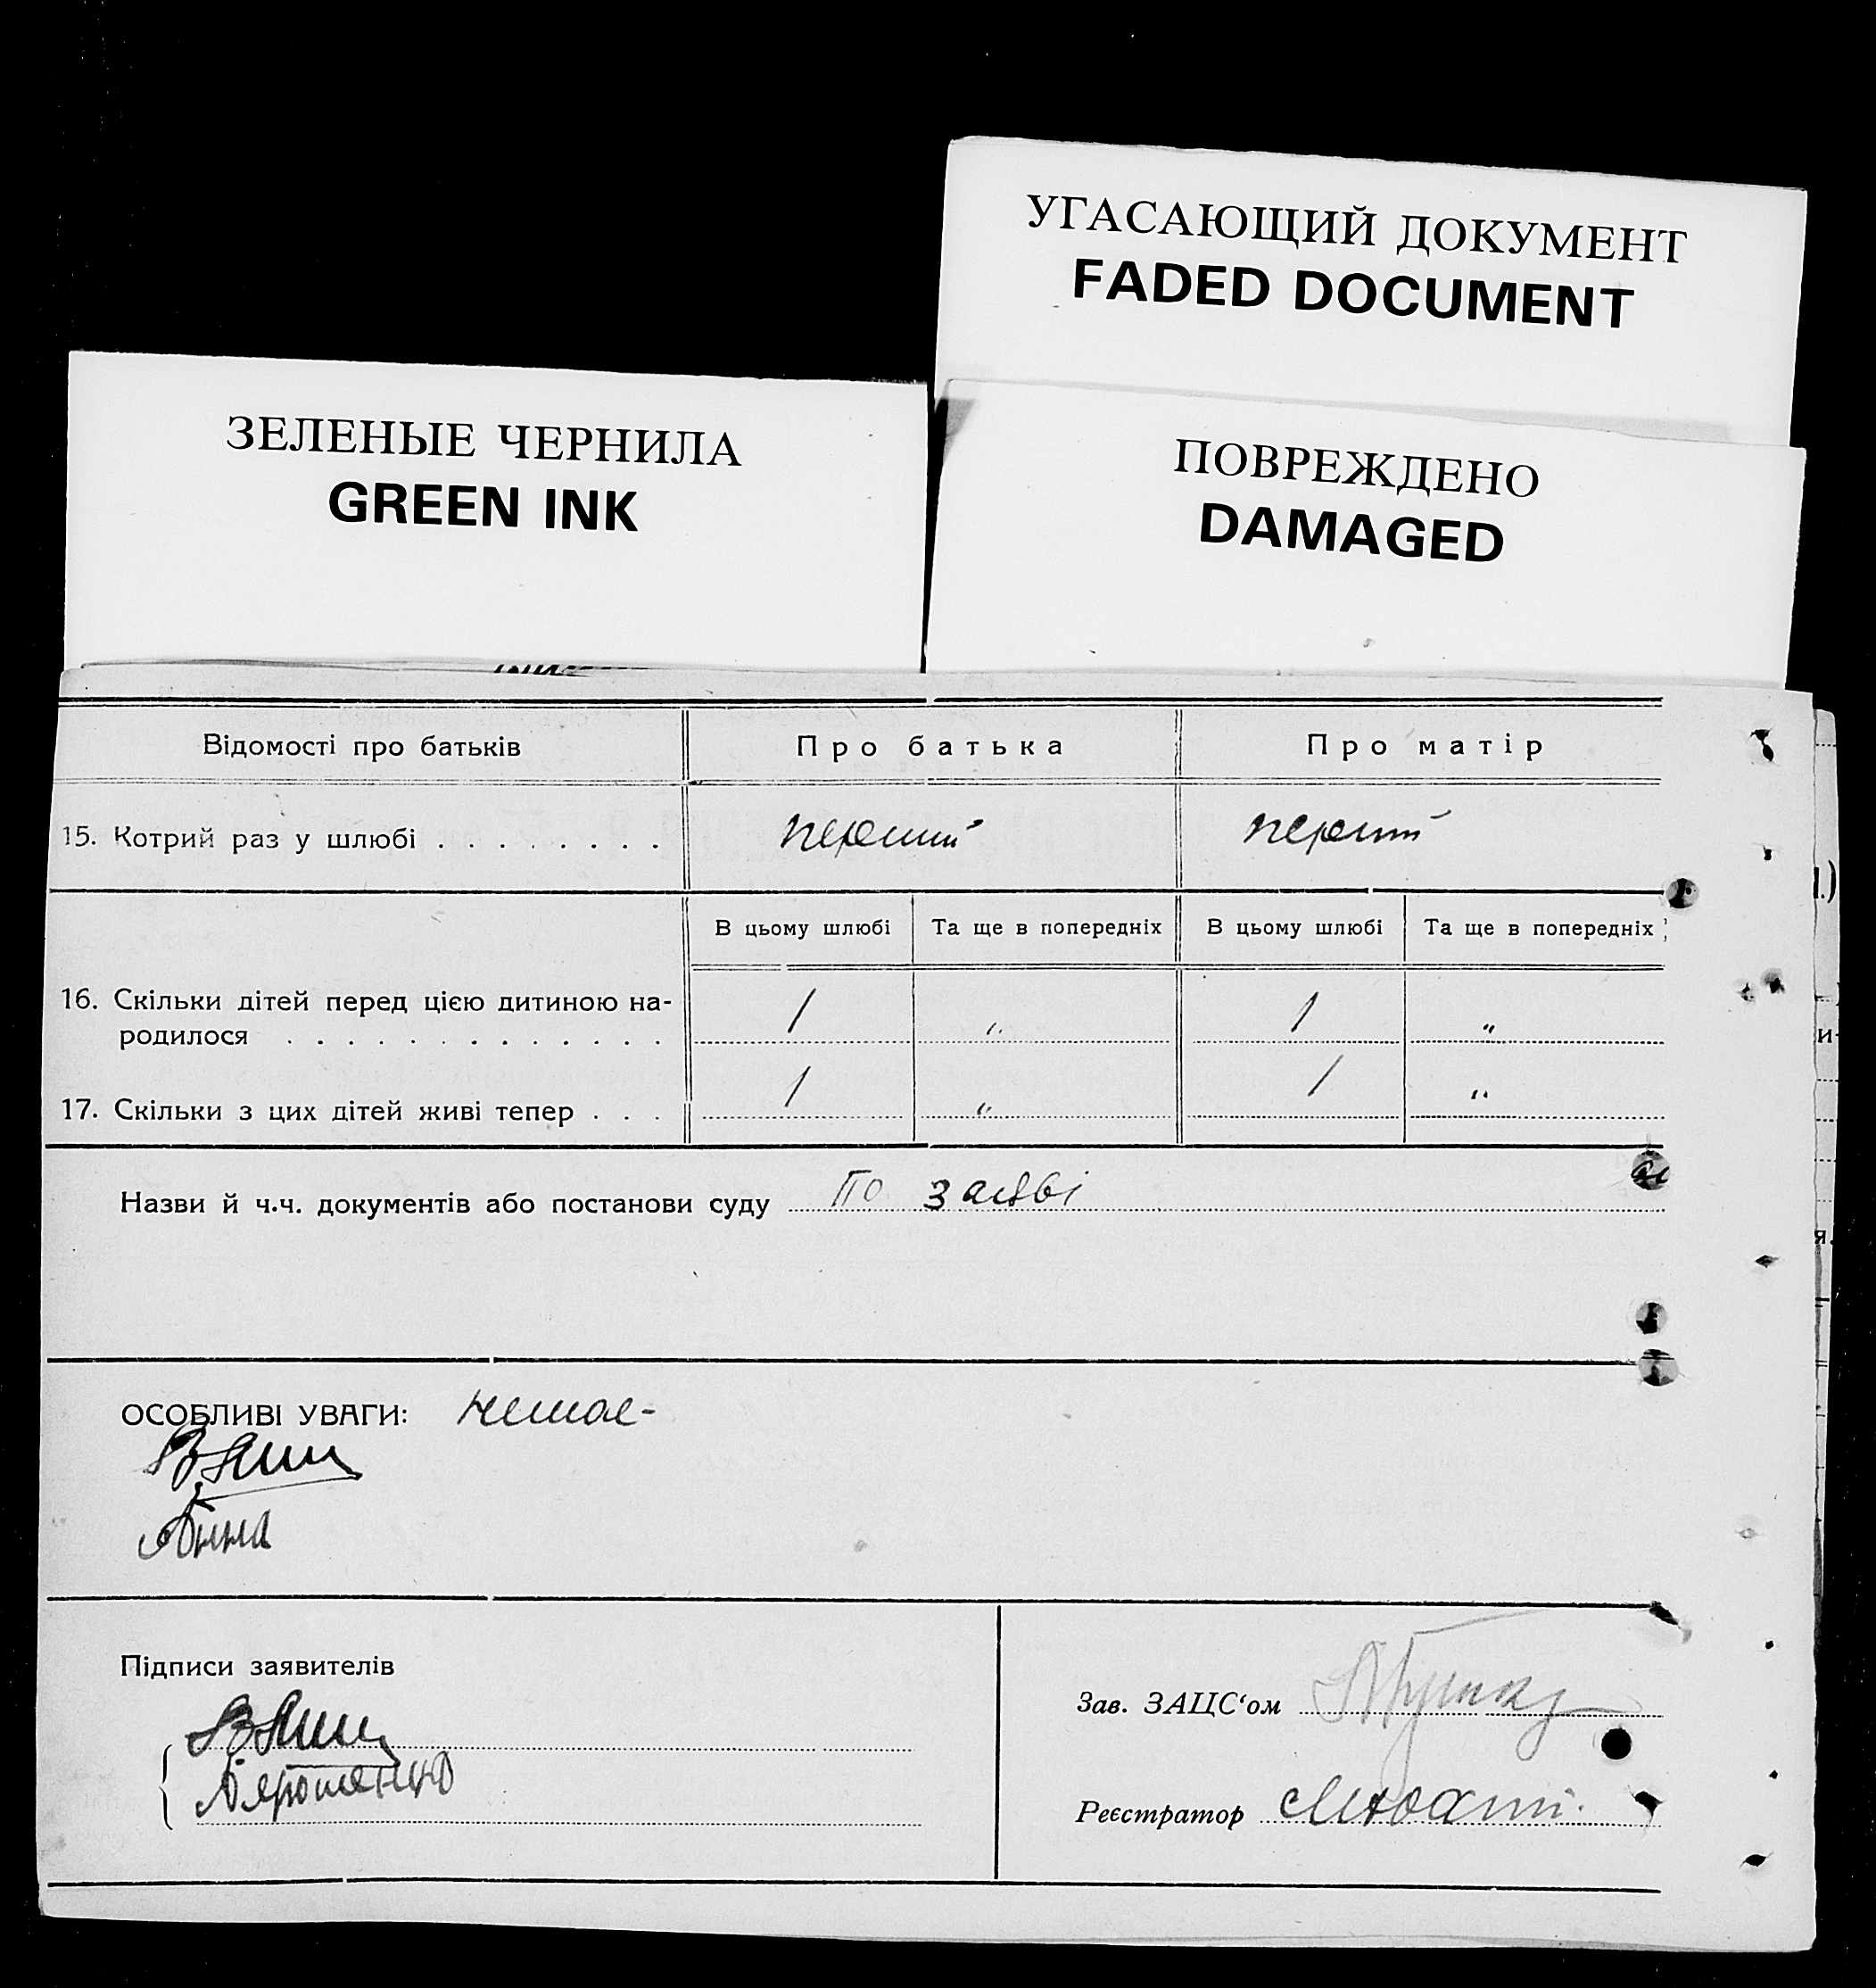 УГАСАЮЩИЙ ДОКУМЕНТ
FADED DOCUMENT
ЗЕЛЕНЫЕ ЧЕРНИЛА
GREEN INK
ПОВРЕЖДЕНО
DAMAGED
Відомості про батьків Про батька Про матір
15. Котрий раз у шлюбі . . . . . . . . перший перший
В цьому шлюбі Та ще в попередніх В цьому шлюбі Та ще в попередніх
16. Скільки дітей перед цією дитиною на-
родилося . . . . . . . . . . . . . 1 " 1 "
17. Скільки з цих дітей живі тепер . . . 1 " 1 "
Назви й ч.ч. документів або постанови суду По заяві
ОСОБЛИВІ УВАГИ: немає-
Анна
Підписи заявителів
Зав. ЗАЦС'ом
Ярошенко
Реєстратор